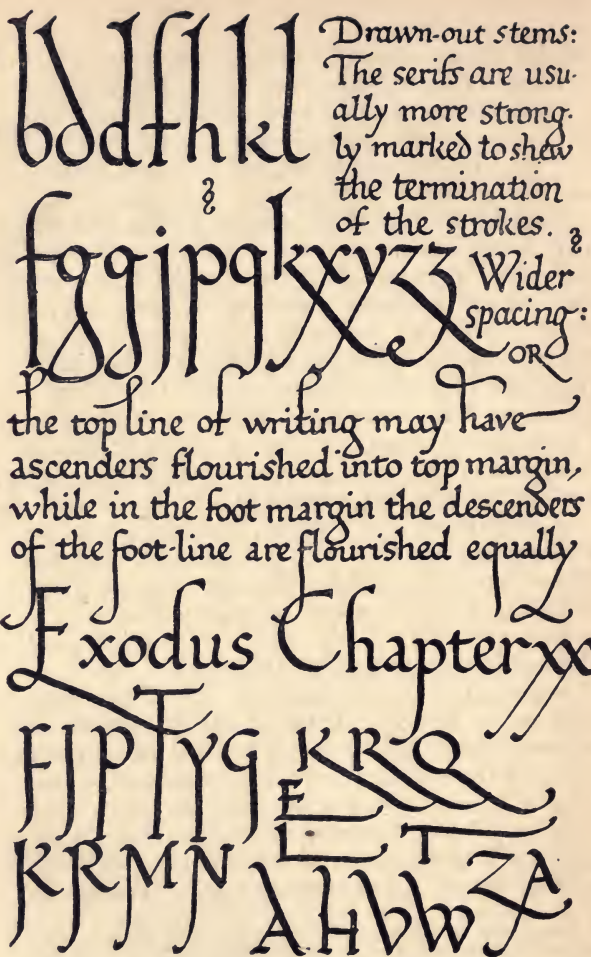 bddfhkl
Drawn-out stems:
The serifs are usu-
ally more strong-
ly marked to shew
the termination
of the strokes.
fggjpqkxyzz
Wider
spacing:
OR
the top line of writing may have
ascenders flourished into top margin,
while in the foot margin the descenders
of the foot-line are flourished equally
Exodus Chapter xx
FJPTYG KRQ
E
L T
KRMN
AHVW ZA